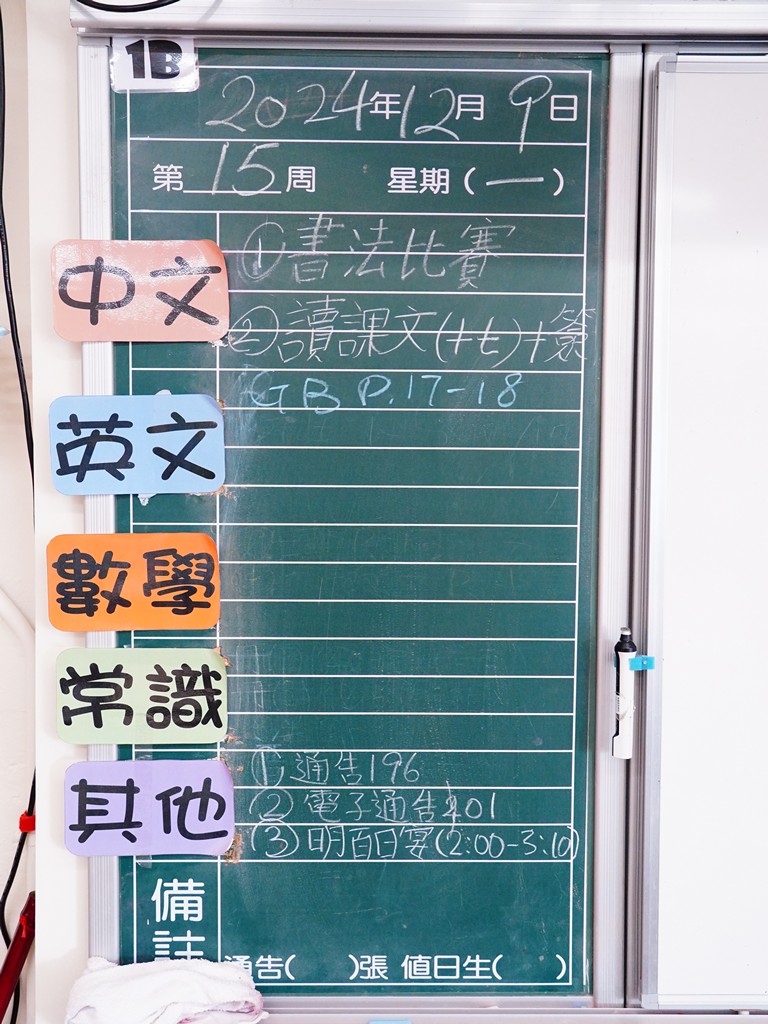 1B
2024年12月9日
第15周 星期(一)
中文
①書法比賽
②讀課文(十七)+簽
GB P.17-18
英文
數學
常識
其他
①通告196
②電子通告201
③明百日宴(2:00-3:10)
備註
通告( )張 值日生( )